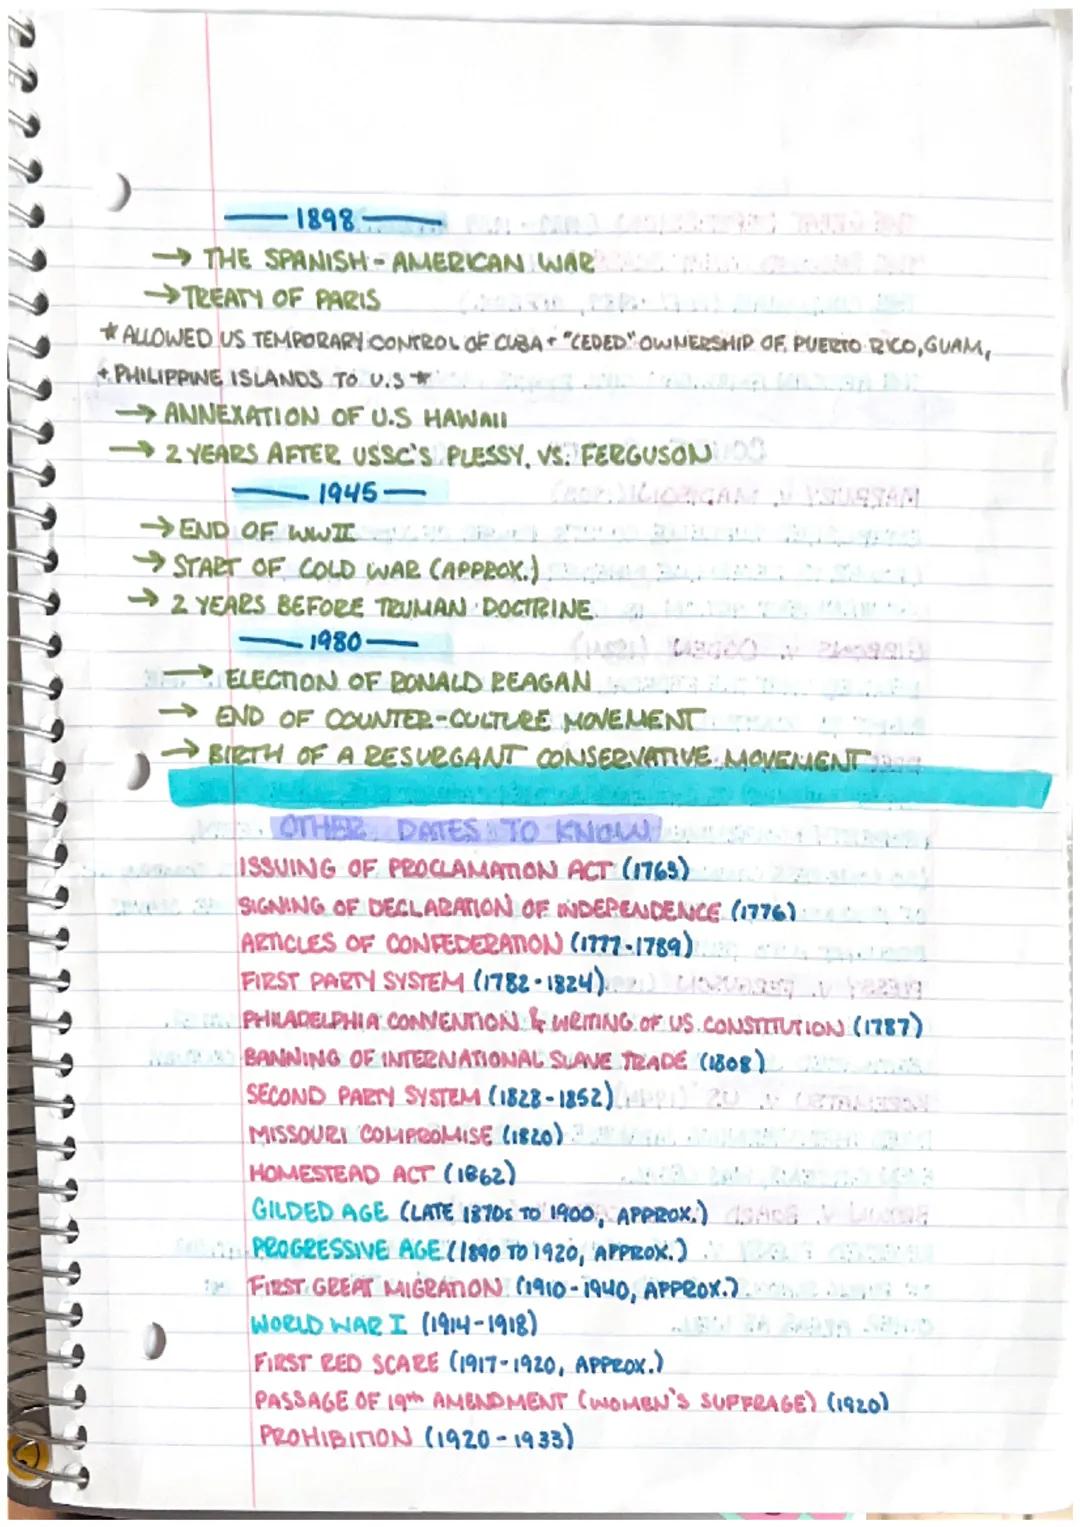 1898
→ THE SPANISH-AMERICAN WAR
→ TREATY OF PARIS
* ALLOWED US TEMPORARY CONTROL OF CUBA + "CEDED" OWNERSHIP OF PUERTO RICO, GUAM,
+ PHILIPPINE ISLANDS TO U.S *
→ ANNEXATION OF U.S HAWAII
→ 2 YEARS AFTER USSC'S PLESSY. VS. FERGUSON
1945
→ END OF WWII
→ START OF COLD WAR (APPROX.)
→ 2 YEARS BEFORE TRUMAN DOCTRINE
1980
→ ELECTION OF RONALD REAGAN
→ END OF COUNTER-CULTURE MOVEMENT
→ BIRTH OF A RESURGANT CONSERVATIVE MOVEMENT
OTHER DATES TO KNOW
ISSUING OF PROCLAMATION ACT (1763)
SIGNING OF DECLARATION OF INDEPENDENCE (1776)
ARTICLES OF CONFEDERATION (1777-1789)
FIRST PARTY SYSTEM (1782-1824)
PHILADELPHIA CONVENTION & WRITING OF US CONSTITUTION (1787)
BANNING OF INTERNATIONAL SLAVE TRADE (1808)
SECOND PARTY SYSTEM (1828-1852)
MISSOURI COMPROMISE (1820)
HOMESTEAD ACT (1862)
GILDED AGE (LATE 1870s TO 1900, APPROX.)
PROGRESSIVE AGE (1890 TO 1920, APPROX.)
FIRST GREAT MIGRATION (1910-1940, APPROX.)
WORLD WAR I (1914-1918)
FIRST RED SCARE (1917-1920, APPROX.)
PASSAGE OF 19th AMENDMENT (WOMEN'S SUFFRAGE) (1920)
PROHIBITION (1920-1933)